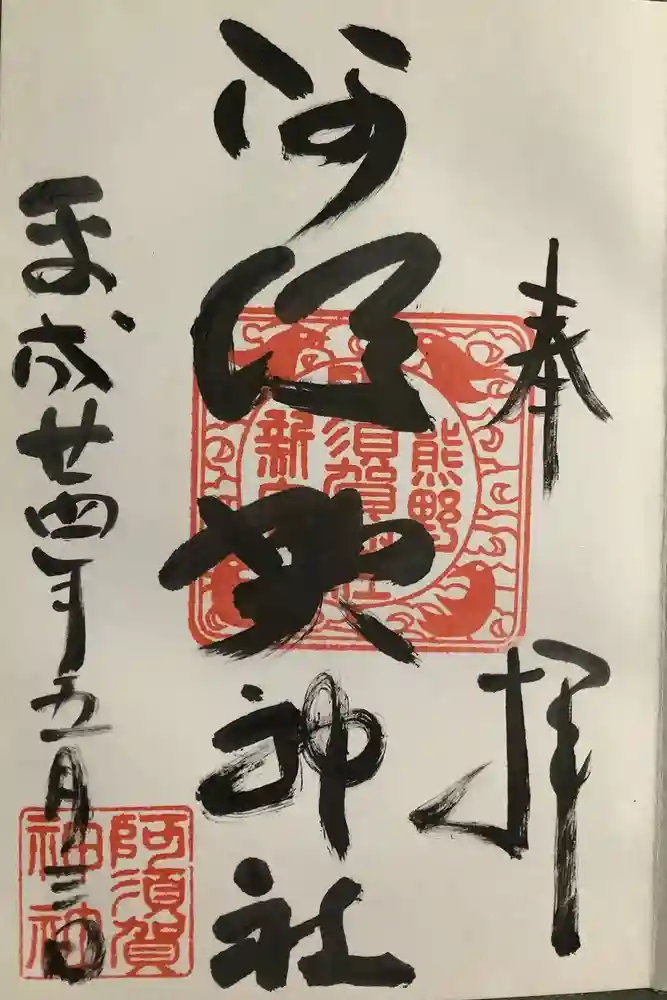 奉拝
阿須賀神社
熊野
須賀
新
平成廿四年五月三日
阿須賀
神社